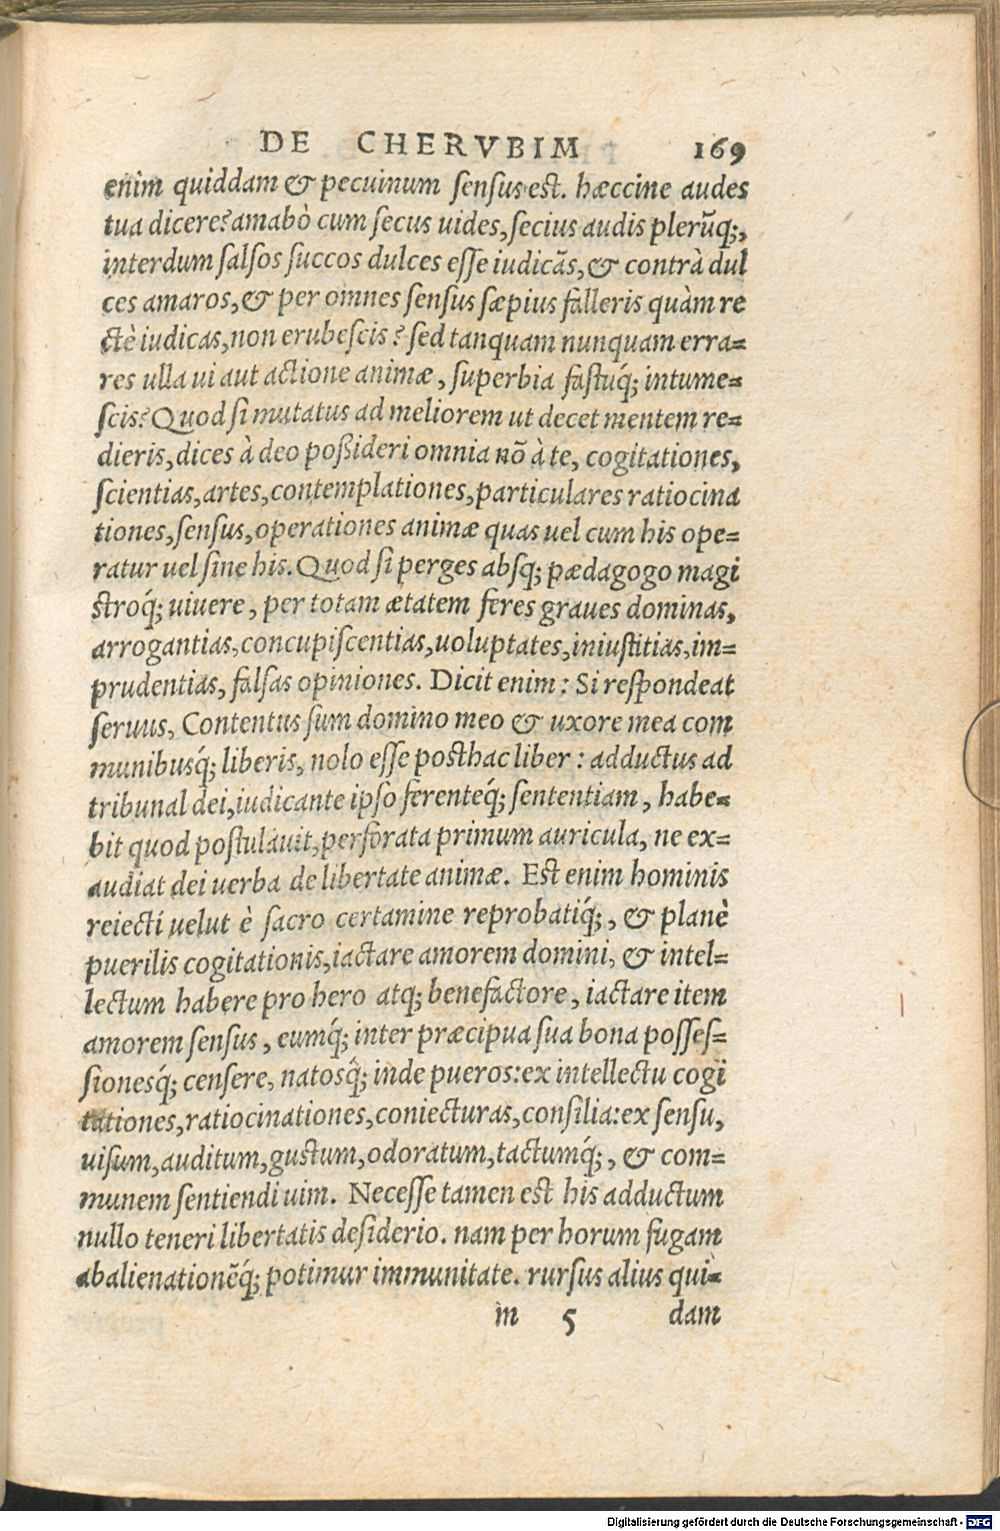 DE CHERVBIM 169
enim quiddam & pecuinum ſenſus eſt. hæccine audes
tua dicere? amabò cum ſecus uides, ſecius audis plerũq;,
interdum ſalſos ſuccos dulces eſſe iudicãs, & contrà dul
ces amaros, & per omnes ſenſus ſæpius falleris quàm re
ctè iudicas, non erubeſcis? ſed tanquam nunquam erra=
res ulla ui aut actione animæ, ſuperbia faſtuq́; intume=
ſcis? Quod ſi mutatus ad meliorem ut decet mentem re=
dieris, dices à deo poßideri omnia nõ à te, cogitationes,
ſcientias, artes, contemplationes, particulares ratiocina
tiones, ſenſus, operationes animæ quas uel cum his ope=
ratur uel ſine his. Quod ſi perges abſq; pædagogo magi
ſtroq́; uiuere, per totam ætatem feres graues dominas,
arrogantias, concupiſcentias, uoluptates, iniuſtitias, im=
prudentias, falſas opiniones. Dicit enim: Si reſpondeat
ſeruus, Contentus ſum domino meo & uxore mea com
munibusq́; liberis, nolo eſſe poſthac liber: adductus ad
tribunal dei, iudicante ipſo ferenteq́; ſententiam, habe=
bit quod poſtulauit, perforata primum auricula, ne ex=
audiat dei uerba de libertate animæ. Eſt enim hominis
reiecti uelut è ſacro certamine reprobatiq́;, & planè
puerilis cogitationis, iactare amorem domini, & intel=
lectum habere pro hero atq; benefactore, iactare item
amorem ſenſus, eumq́; inter præcipua ſua bona poſſeſ=
ſionesq́; cenſere, natosq́; inde pueros: ex intellectu cogi
tationes, ratiocinationes, coniecturas, conſilia: ex ſenſu,
uiſum, auditum, guſtum, odoratum, tactumq́;, & com=
munem ſentiendi uim. Neceſſe tamen eſt his adductum
nullo teneri libertatis deſiderio. nam per horum fugam
abalienationẽq́; potimur immunitate. rurſus alius qui=
m 5 dam
Digitalisierung gefördert durch die Deutsche Forschungsgemeinschaft - DFG